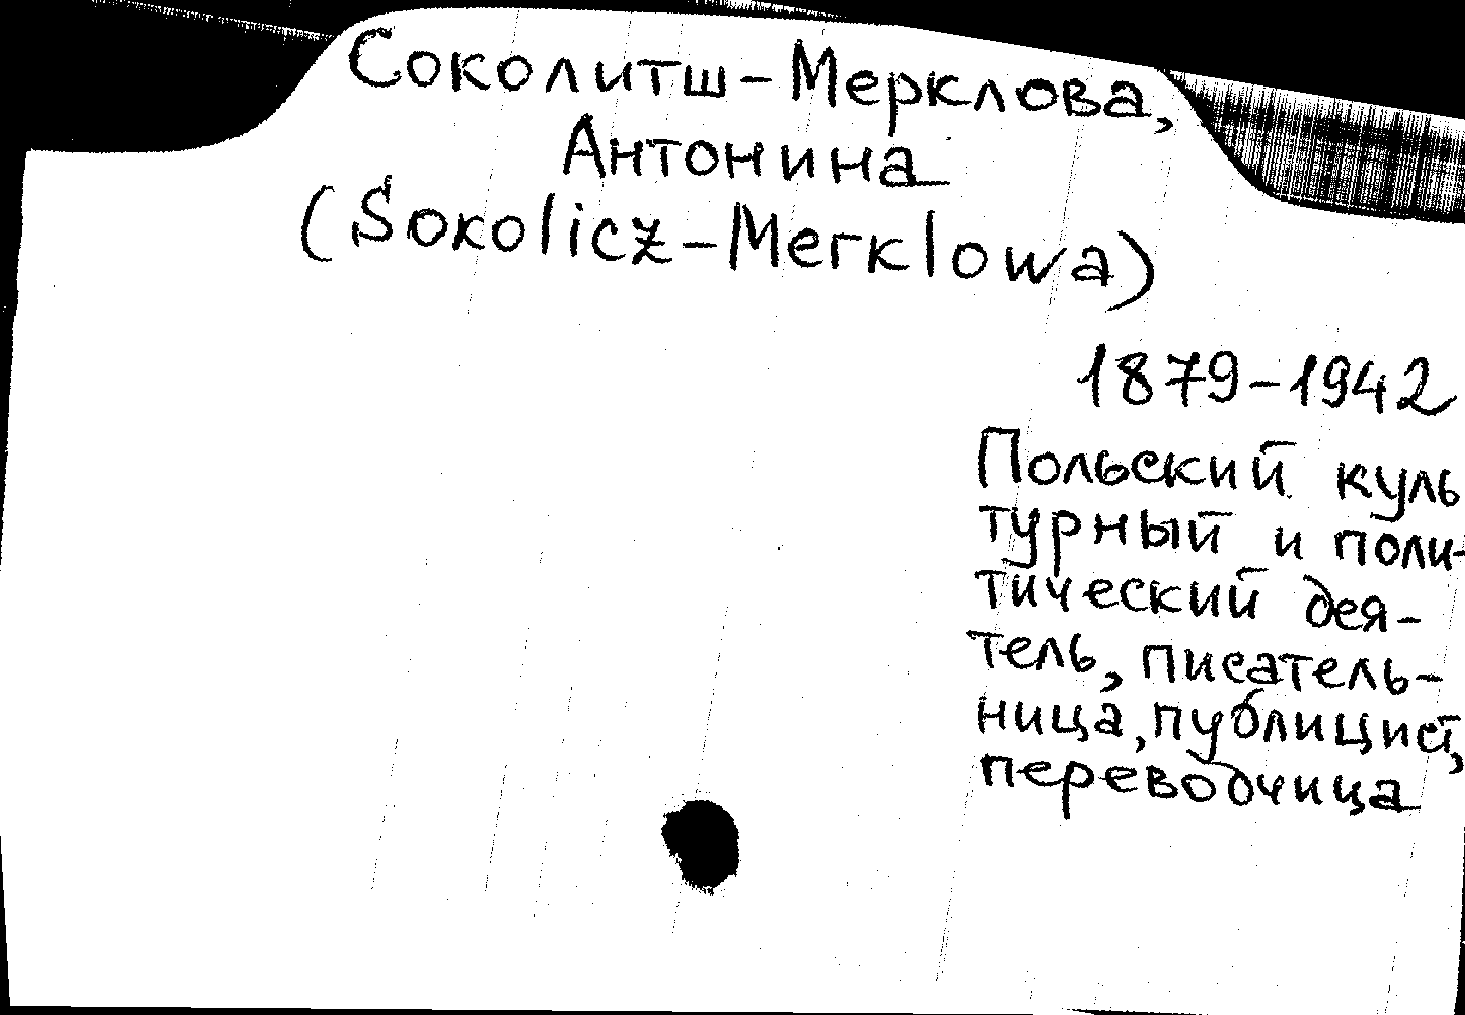 Соколитш-Мерклова,
Антонина
(Sokolicz-Merklowa)
1879-1942
Польский куль
турный и поли-
тический дея-
тель, писатель-
ница, публицист,
переводчица